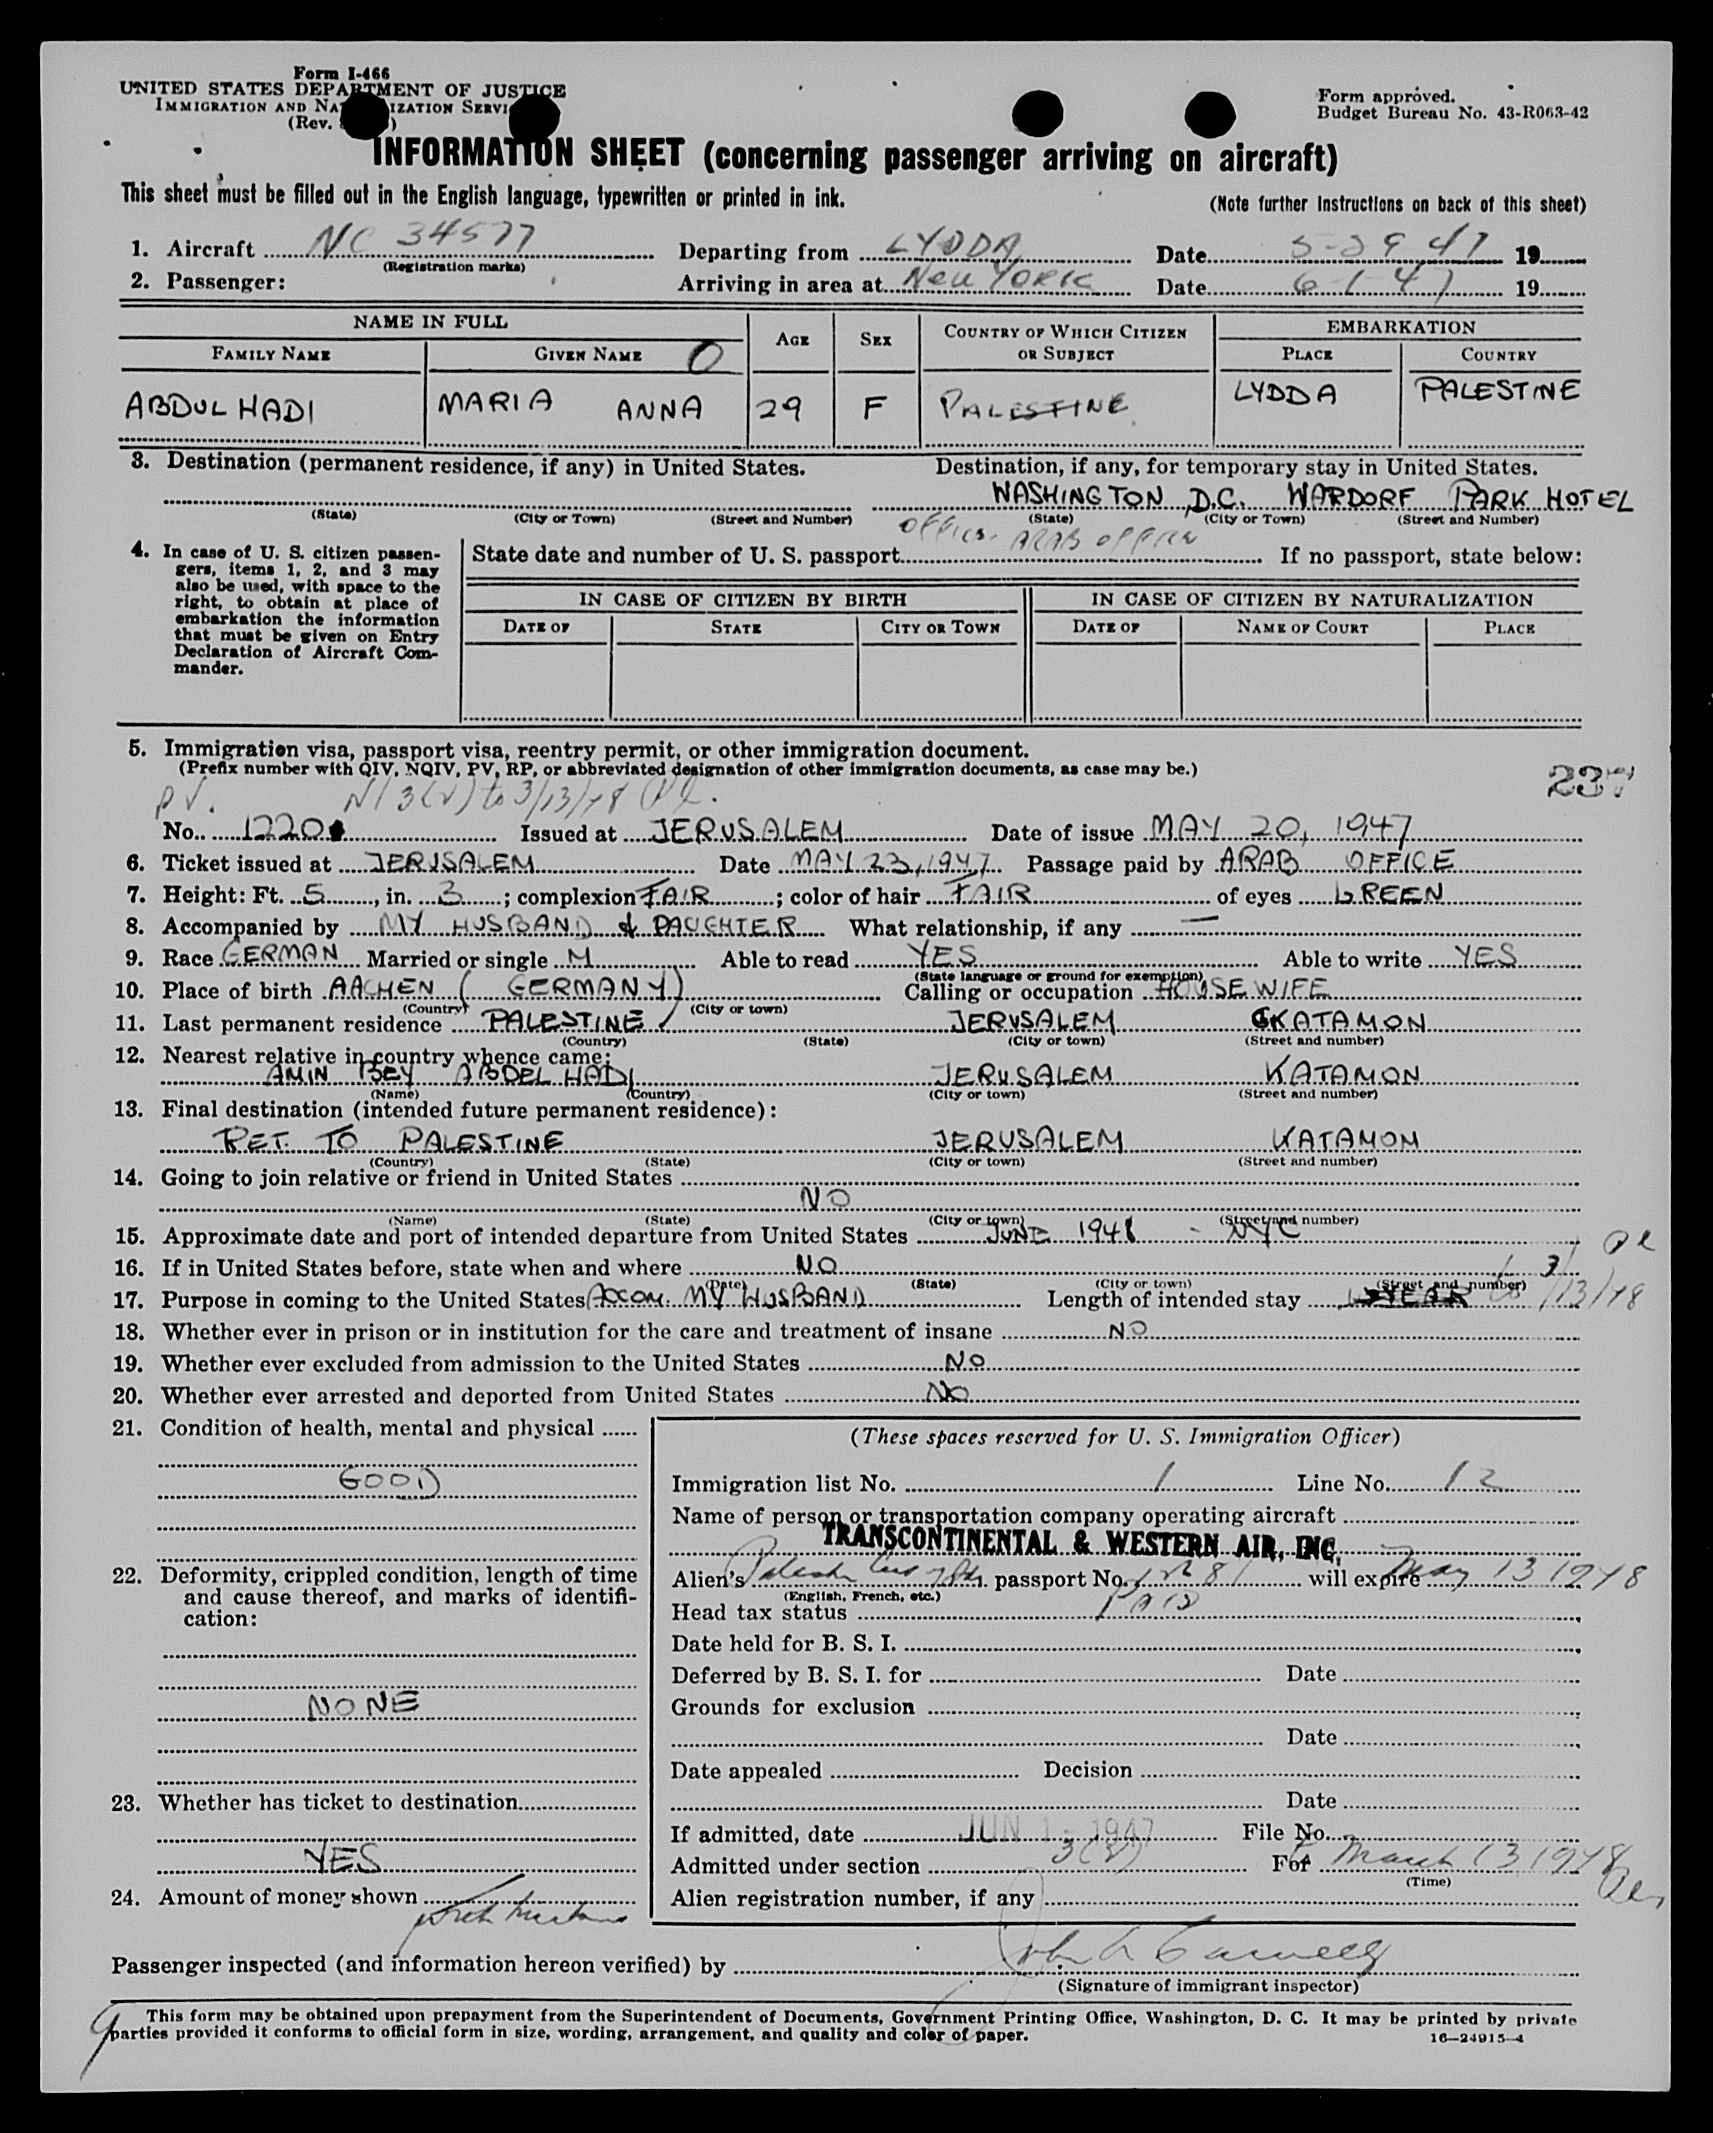 Form I-466
UNITED STATES DEPARTMENT OF JUSTICE
IMMIGRATION AND NATURALIZATION SERVICE
(Rev.
Form approved.
Budget Bureau No. 43-R063-42
INFORMATION SHEET (concerning passenger arriving on aircraft)
This sheet must be filled out in the English language, typewritten or printed in ink.
(Note further instructions on back of this sheet)
1. Aircraft NC 34577 Departing from LYDDA Date 5-29 47 19
(Registration marks)
2. Passenger: Arriving in area at New YORK Date 6-1-47 19
NAME IN FULL AGE SEX COUNTRY OF WHICH CITIZEN OR SUBJECT EMBARKATION
FAMILY NAME GIVEN NAME PLACE COUNTRY
ABDUL HADI MARIA ANNA 29 F PALESTINE LYDDA PALESTINE
3. Destination (permanent residence, if any) in United States. Destination, if any, for temporary stay in United States.
WASHINGTON, D.C. WARDORF PARK HOTEL
(State) (City or Town) (Street and Number) (State) (City or Town) (Street and Number)
OFFICE. ARAB OFFICE
4. In case of U. S. citizen passengers, items 1, 2, and 3 may also be used, with space to the right, to obtain at place of embarkation the information that must be given on Entry Declaration of Aircraft Commander.
State date and number of U. S. passport If no passport, state below:
IN CASE OF CITIZEN BY BIRTH IN CASE OF CITIZEN BY NATURALIZATION
DATE OF STATE CITY OR TOWN DATE OF NAME OF COURT PLACE
5. Immigration visa, passport visa, reentry permit, or other immigration document.
(Prefix number with QIV, NQIV, PV, RP, or abbreviated designation of other immigration documents, as case may be.)
237
PV. 3(2) to 3/13/48
No. 1220 Issued at JERUSALEM Date of issue MAY 20, 1947
6. Ticket issued at JERUSALEM Date MAY 23, 1947 Passage paid by ARAB OFFICE
7. Height: Ft. 5, in. 3; complexion FAIR; color of hair FAIR of eyes GREEN
8. Accompanied by MY HUSBAND & DAUGHTER What relationship, if any —
9. Race GERMAN Married or single M Able to read YES Able to write YES
(State language or ground for exemption)
10. Place of birth AACHEN (GERMANY) Calling or occupation HOUSEWIFE
(Country) (City or town)
11. Last permanent residence PALESTINE JERUSALEM KATAMON
(Country) (State) (City or town) (Street and number)
12. Nearest relative in country whence came:
AMIN BEY ABDEL HADI JERUSALEM KATAMON
(Name) (Country) (City or town) (Street and number)
13. Final destination (intended future permanent residence):
RET. TO PALESTINE JERUSALEM KATAMON
(Country) (State) (City or town) (Street and number)
14. Going to join relative or friend in United States
NO
(Name) (State) (City or town) (Street and number)
15. Approximate date and port of intended departure from United States JUNE 1948 - NYC
16. If in United States before, state when and where NO
(Date) (State) (City or town) (Street and number)
17. Purpose in coming to the United States ACCOM. MY HUSBAND Length of intended stay YEAR to 3/13/48
18. Whether ever in prison or in institution for the care and treatment of insane NO
19. Whether ever excluded from admission to the United States NO
20. Whether ever arrested and deported from United States NO
21. Condition of health, mental and physical
GOOD
22. Deformity, crippled condition, length of time and cause thereof, and marks of identification:
NONE
23. Whether has ticket to destination
YES
24. Amount of money shown
(These spaces reserved for U. S. Immigration Officer)
Immigration list No. 1 Line No. 12
Name of person or transportation company operating aircraft
TRANSCONTINENTAL & WESTERN AIR, INC.
Alien's passport No. will expire May 13 1948
(English, French, etc.)
Head tax status PAID
Date held for B. S. I.
Deferred by B. S. I. for Date
Grounds for exclusion
Date
Date appealed Decision
Date
If admitted, date JUN 1 - 1947 File No.
Admitted under section 3(2) For March 13 1948
(Time)
Alien registration number, if any
Passenger inspected (and information hereon verified) by
(Signature of immigrant inspector)
This form may be obtained upon prepayment from the Superintendent of Documents, Government Printing Office, Washington, D. C. It may be printed by private
parties provided it conforms to official form in size, wording, arrangement, and quality and color of paper.
16—24915-4